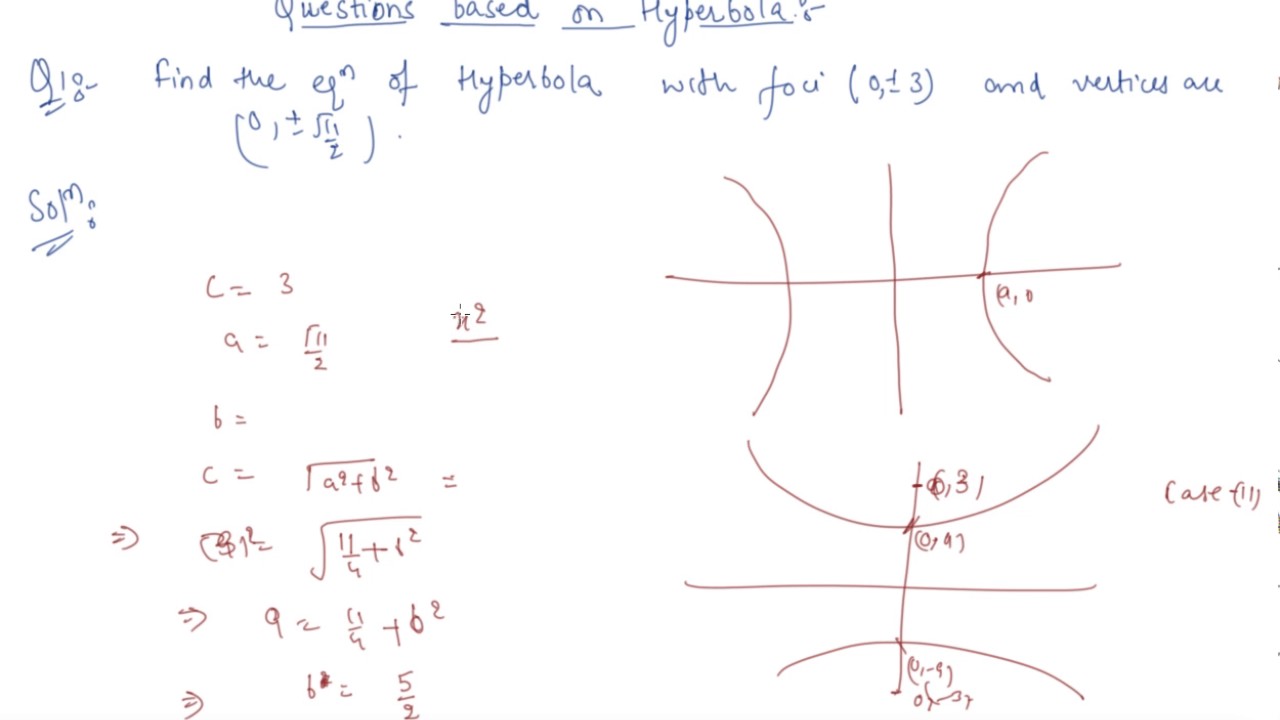 Questions based on Hyperbola:-
Q1:- Find the eqⁿ of Hyperbola with foci (0,± 3) and vertices are
(0, ± √11/2).
Solⁿ:
C = 3
a = √11/2
x²
b =
C = √a²+b² =
⇒ (3)² = √11/4 + b²
⇒ 9 = 11/4 + b²
⇒ b = 5/2
(a, 0
(0,3)
(0,a)
Case-(II)
(0,-a)
0,-3)